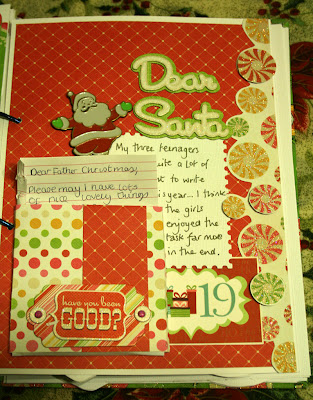 Dear
Santa
My three teenagers
quite a lot of
to write
is year... I think
the girls
enjoyed the
task far more
in the end.
Dear Father Christmas,
Please may I have lots
of nice lovely things
have you been
GOOD?
19